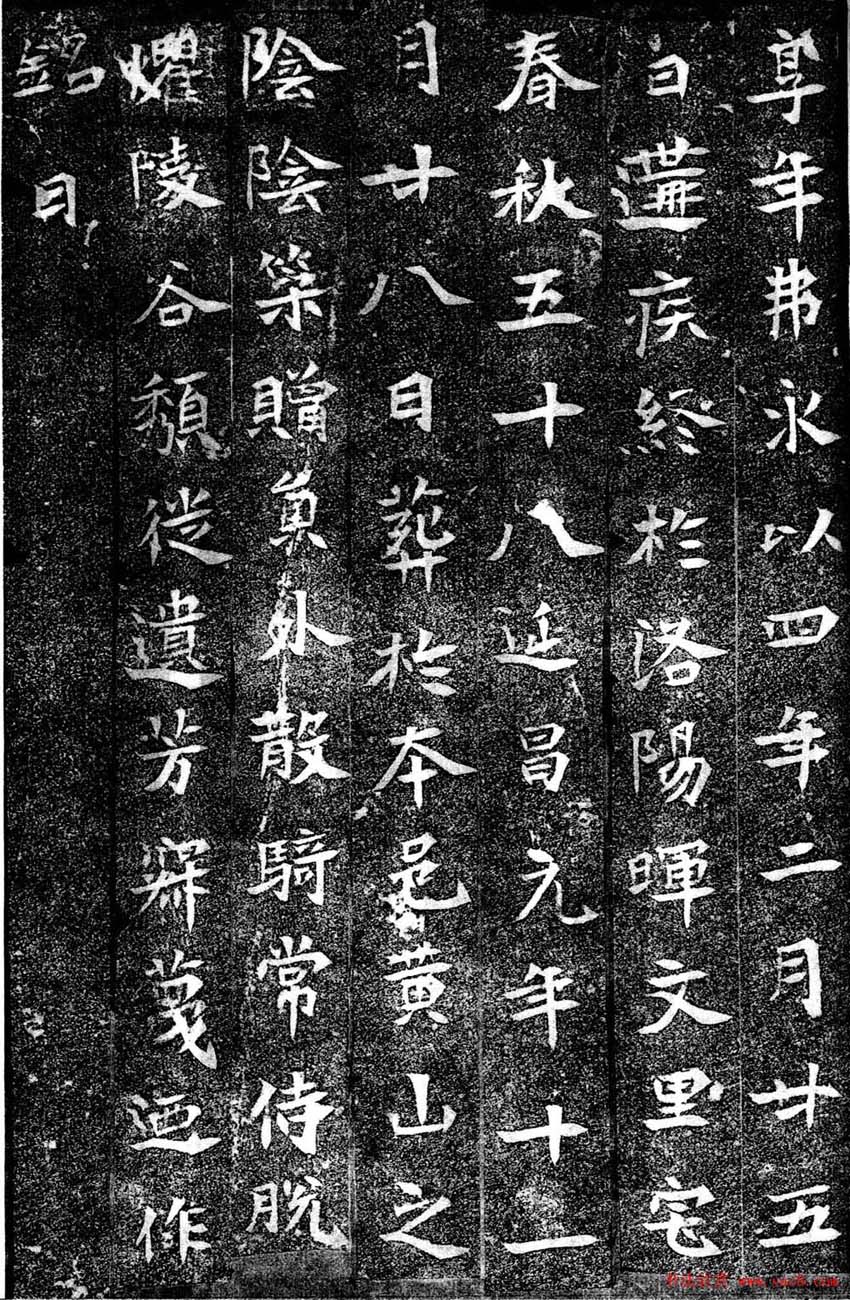 享年弗永以四年二月廿五
日遘疾終於洛陽暉文里宅
春秋五十八延昌元年十一
月廿八日葬於本邑黄山之
陰陰築贈員外散騎常侍脱
懼陵谷頽徙遺芳寂蔑迺作
銘曰
www.yac8.com